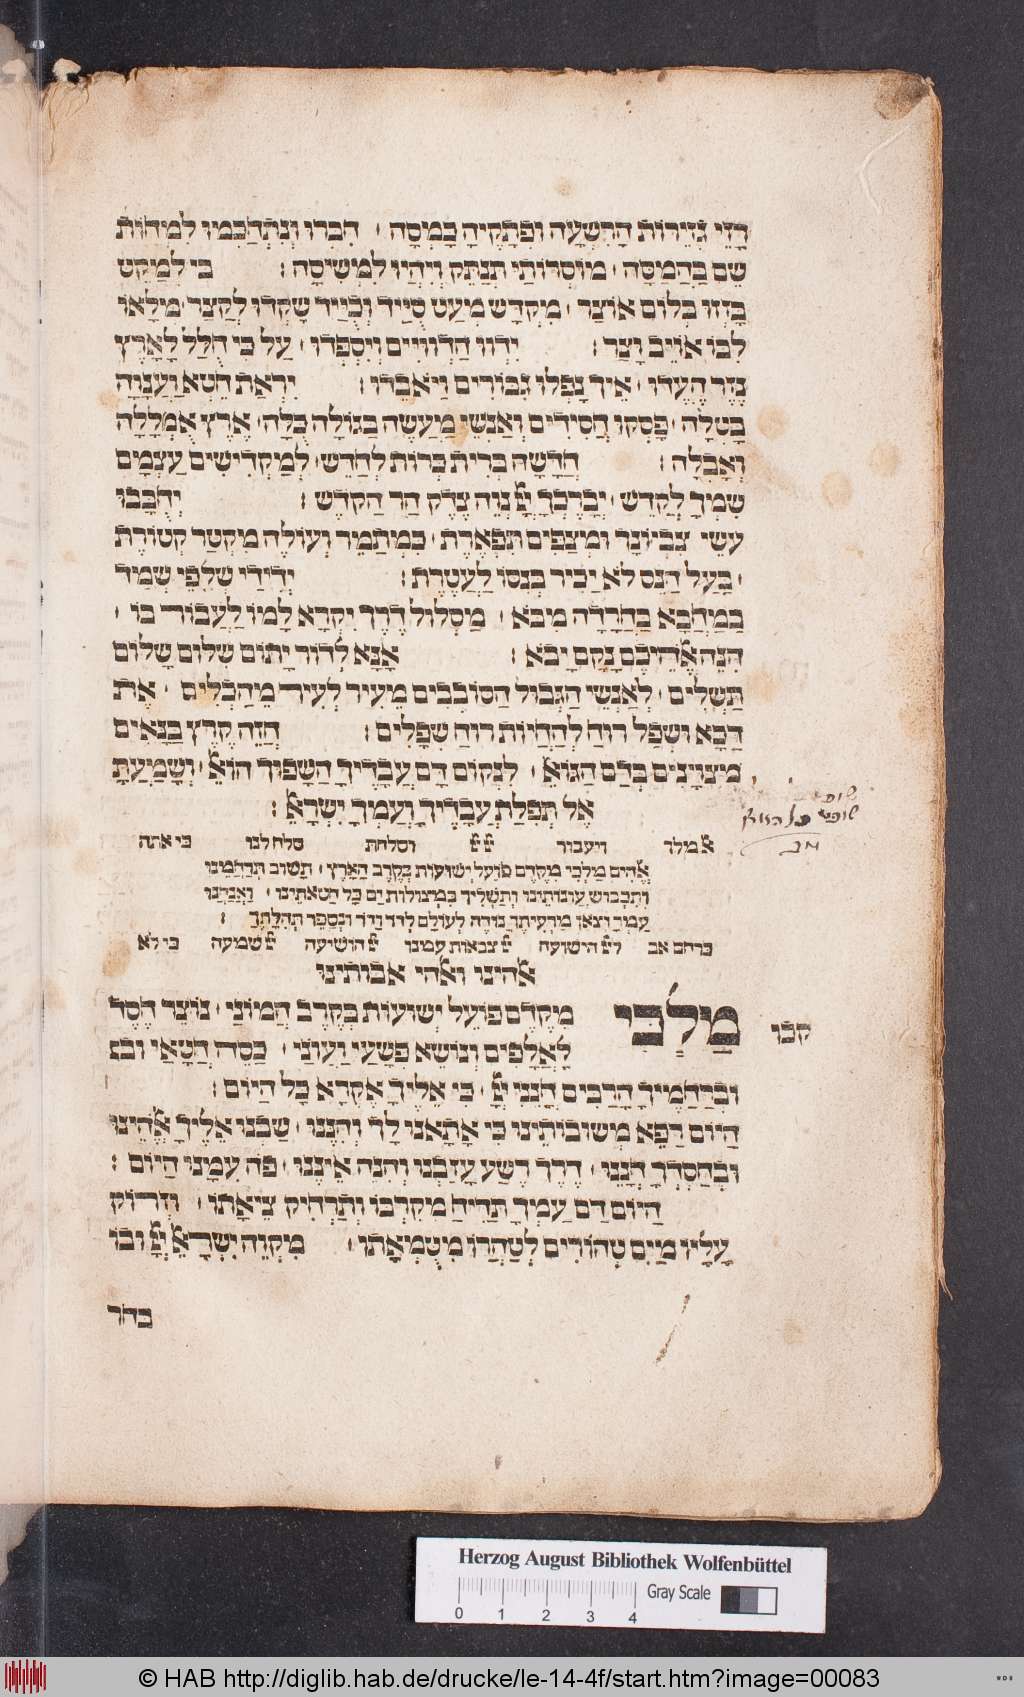 דָזֵי גְזֵירוֹת הָרִשְׁעָה וּפַתְקֶיהָ בָמְסָה · הִכְרוּ וְנִתְחַכְּמוּ לִמְחוֹת
שֵׁם בְּהַמַסָה · מוֹסְרוֹתַי תְנַתֵּק וְיִהְיוּ לִמְשִׁיסָה : כִּי לְמַקֵשׁ
בָּזְזוּ בְּלוּם אוֹצַר · מִקְדָשׁ מְעַט שָׁקְדוּ לְקַצַר · מִלְאוּ
לִבּוֹ אוֹיֵב וָצַר : יִדְווּ הַדְווּיִים וְיִסְפְּדוּ · עַל כִּי חֻלַל לָאָרֶץ
נֵזֶר הֶעְדוּ · אֵיךְ נָפְלוּ גִבּוֹרִים וַיֹאבֵדוּ : יִרְאַת חֵטְא וַעֲנָוָה
בָטְלָה · פָּסְקוּ חֲסִידִים וְאַנְשֵׁי מַעֲשֶׂה בַגּוֹלָה כָלָה · אֶרֶץ אֻמְלָלָה
וְאָבְלָה : חֲדָשָׁה בְרִית כְּרוֹת לְחַדֵשׁ · לְמַקְדִישִׁים עַצְמָם
שִׁמְךָ לְקַדֵשׁ · יְבָרֶכְךָ יְיָ נְוֵה צֶדֶק הַר הַקֹדֶשׁ :
עֹשֵׂי צִבְיוֹנָךְ וּמְצַפִּים תִּפְאֶרֶת · כִּמְתַמֵר וְעוֹלֶה מִקְטַר קְטוֹרֶת
· בַּעַל הַנֵס לֹא יַכִּיר בְּנִסּוֹ לַעֲטֶרֶת : יְדִידַי
בְּמַחֲבָא בַּחֲרָדָה מִיבֹא · מַסְלוּל דֶרֶךְ יִקָרָא לָמוֹ לַעֲבוֹר בּוֹ ·
הִנֵה אֱלֹהֵיכֶם נָקָם יָבֹא : אָנָא לְדוֹר יָתוֹם שִׁלוּם שָׁלוֹם
תַּשְׁלִים · לְאַנְשֵׁי הַגְבוּל הַסוֹבְבִים מֵעִיר לְעִיר מְהַבָלִים · אֶת
דַכָּא וּשְׁפַל רוּחַ לְהַחֲיוֹת רוּחַ שְׁפָלִים : הֲזֵה קֶרֶץ בַּגֵאִים
מְצוּיָנִים כְּרַם הַגּוֹא · לִנְקוֹם דַם עֲבָדֶיךָ הַשָׁפוּךְ הוּא · וְשָׁמַעְתָּ
אֶל תְּפִלַת עֲבָדֶיךָ וְעַמְךָ יִשְׂרָאֵל :
אל מלך ויעבור יי יי וסלחת סלח לנו כי אתה
אֱלֹהִים מַלְכִּי מִקֶדֶם פּוֹעֵל יְשׁוּעוֹת בְּקֶרֶב הָאָרֶץ · תָּשׁוּב תְּרַחֲמֵינוּ
וְתִכְבּוֹשׁ עֲוֹנוֹתֵינוּ וְתַשְׁלִיךְ בִּמְצוּלוֹת יָם כָּל חַטֹאתֵינוּ · וַאֲנַחְנוּ
עַמְךָ וְצֹאן מַרְעִיתֶךָ נוֹדֶה לְעוֹלָם לְדוֹר וָדוֹר וּנְסַפֵּר תְּהִלָתֶךָ :
כרחם אב ליי הישועה יי צבאות עמנו יי הושיעה יי שמעה כי לא
אלהינו ואלהי אבותינו
מַלְכִּי מִקֶדֶם פּוֹעֵל יְשׁוּעוֹת בְּקֶרֶב הֲמוֹנַי · נוֹצֵר חֶסֶד קכו
לָאֲלָפִים וְנוֹשֵׂא פְּשָׁעַי וַעֲוֹנָי · כַּסֵה חֲטָאַי
וּבְרַחֲמֶיךָ הָרַבִּים חָנֵנִי יְיָ · כִּי אֵלֶיךָ אֶקְרָא כָּל הַיוֹם :
הַיוֹם רְפָא מְשׁוּבוֹתֵינוּ כִּי אָתָאנוּ לָךְ וְהִנֵנוּ · שַׁבְנוּ אֵלֶיךָ אֱלֹהֵינוּ
וּבְחַסְדְךָ חָנֵנוּ · דֶרֶךְ רֶשַׁע עָזַבְנוּ וְהִנֵה אֵינֶנוּ · פֹה עִמָנוּ הַיוֹם :
הַיוֹם דַם עַמְךָ תָּדִיחַ מִקִרְבּוֹ וְתַרְחִיק צֵיאָתוֹ · וְזָרוֹק
עָלָיו מַיִם טְהוֹרִים לְטַהֲרוֹ מִטֻמְאָתוֹ · מִקְוֵה יִשְׂרָאֵל יְיָ וּבוֹ
בחר
Herzog August Bibliothek Wolfenbüttel
Gray Scale
0 1 2 3 4
© HAB http://diglib.hab.de/drucke/le-14-4f/start.htm?image=00083